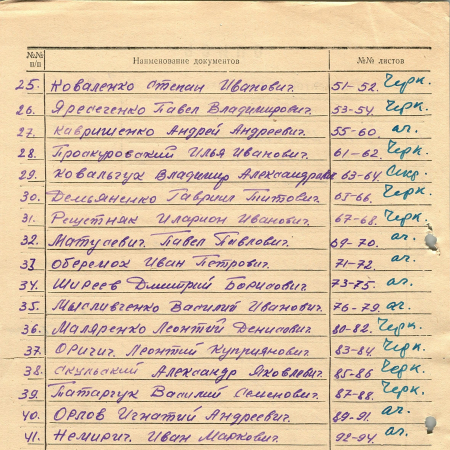 №№ п/п Наименование документов №№ листов
25. Коваленко Степан Иванович. 51-52. Черк.
26. Яресегенко Павел Владимирович. 53-54. Черк.
27. Кавришенко Андрей Андреевич. 55-60. аг.
28. Проскуровский Илья Иванович. 61-62. Черк.
29. Ковальчук Владимир Александрович 63-64.
30. Демьяненко Гавриил Титович. 65-66. Черк.
31. Решетняк Иларион Иванович. 67-68. Черк.
32. Матусевич. Павел Павлович. 69-70. аг.
33 Оберемох Иван Петрович. 71-72. аг.
34. Ширеев Дмитрий Борисович. 73-75. аг.
35. Мысливченко Василий Иванович. 76-79. аг.
36. Маляренко Леонтий Денисович. 80-82. Черк.
37. Оричич. Леонтий Куприянович. 83-84. Черк.
38. Скульский Александр Яковлевич. 85-86 Черк.
39. Патаргук Василий Семенович. 87-88. Черк.
40. Орлов Игнатий Андреевич. 89-91. аг.
41. Немирич. Иван Маркович. 92-94. аг.